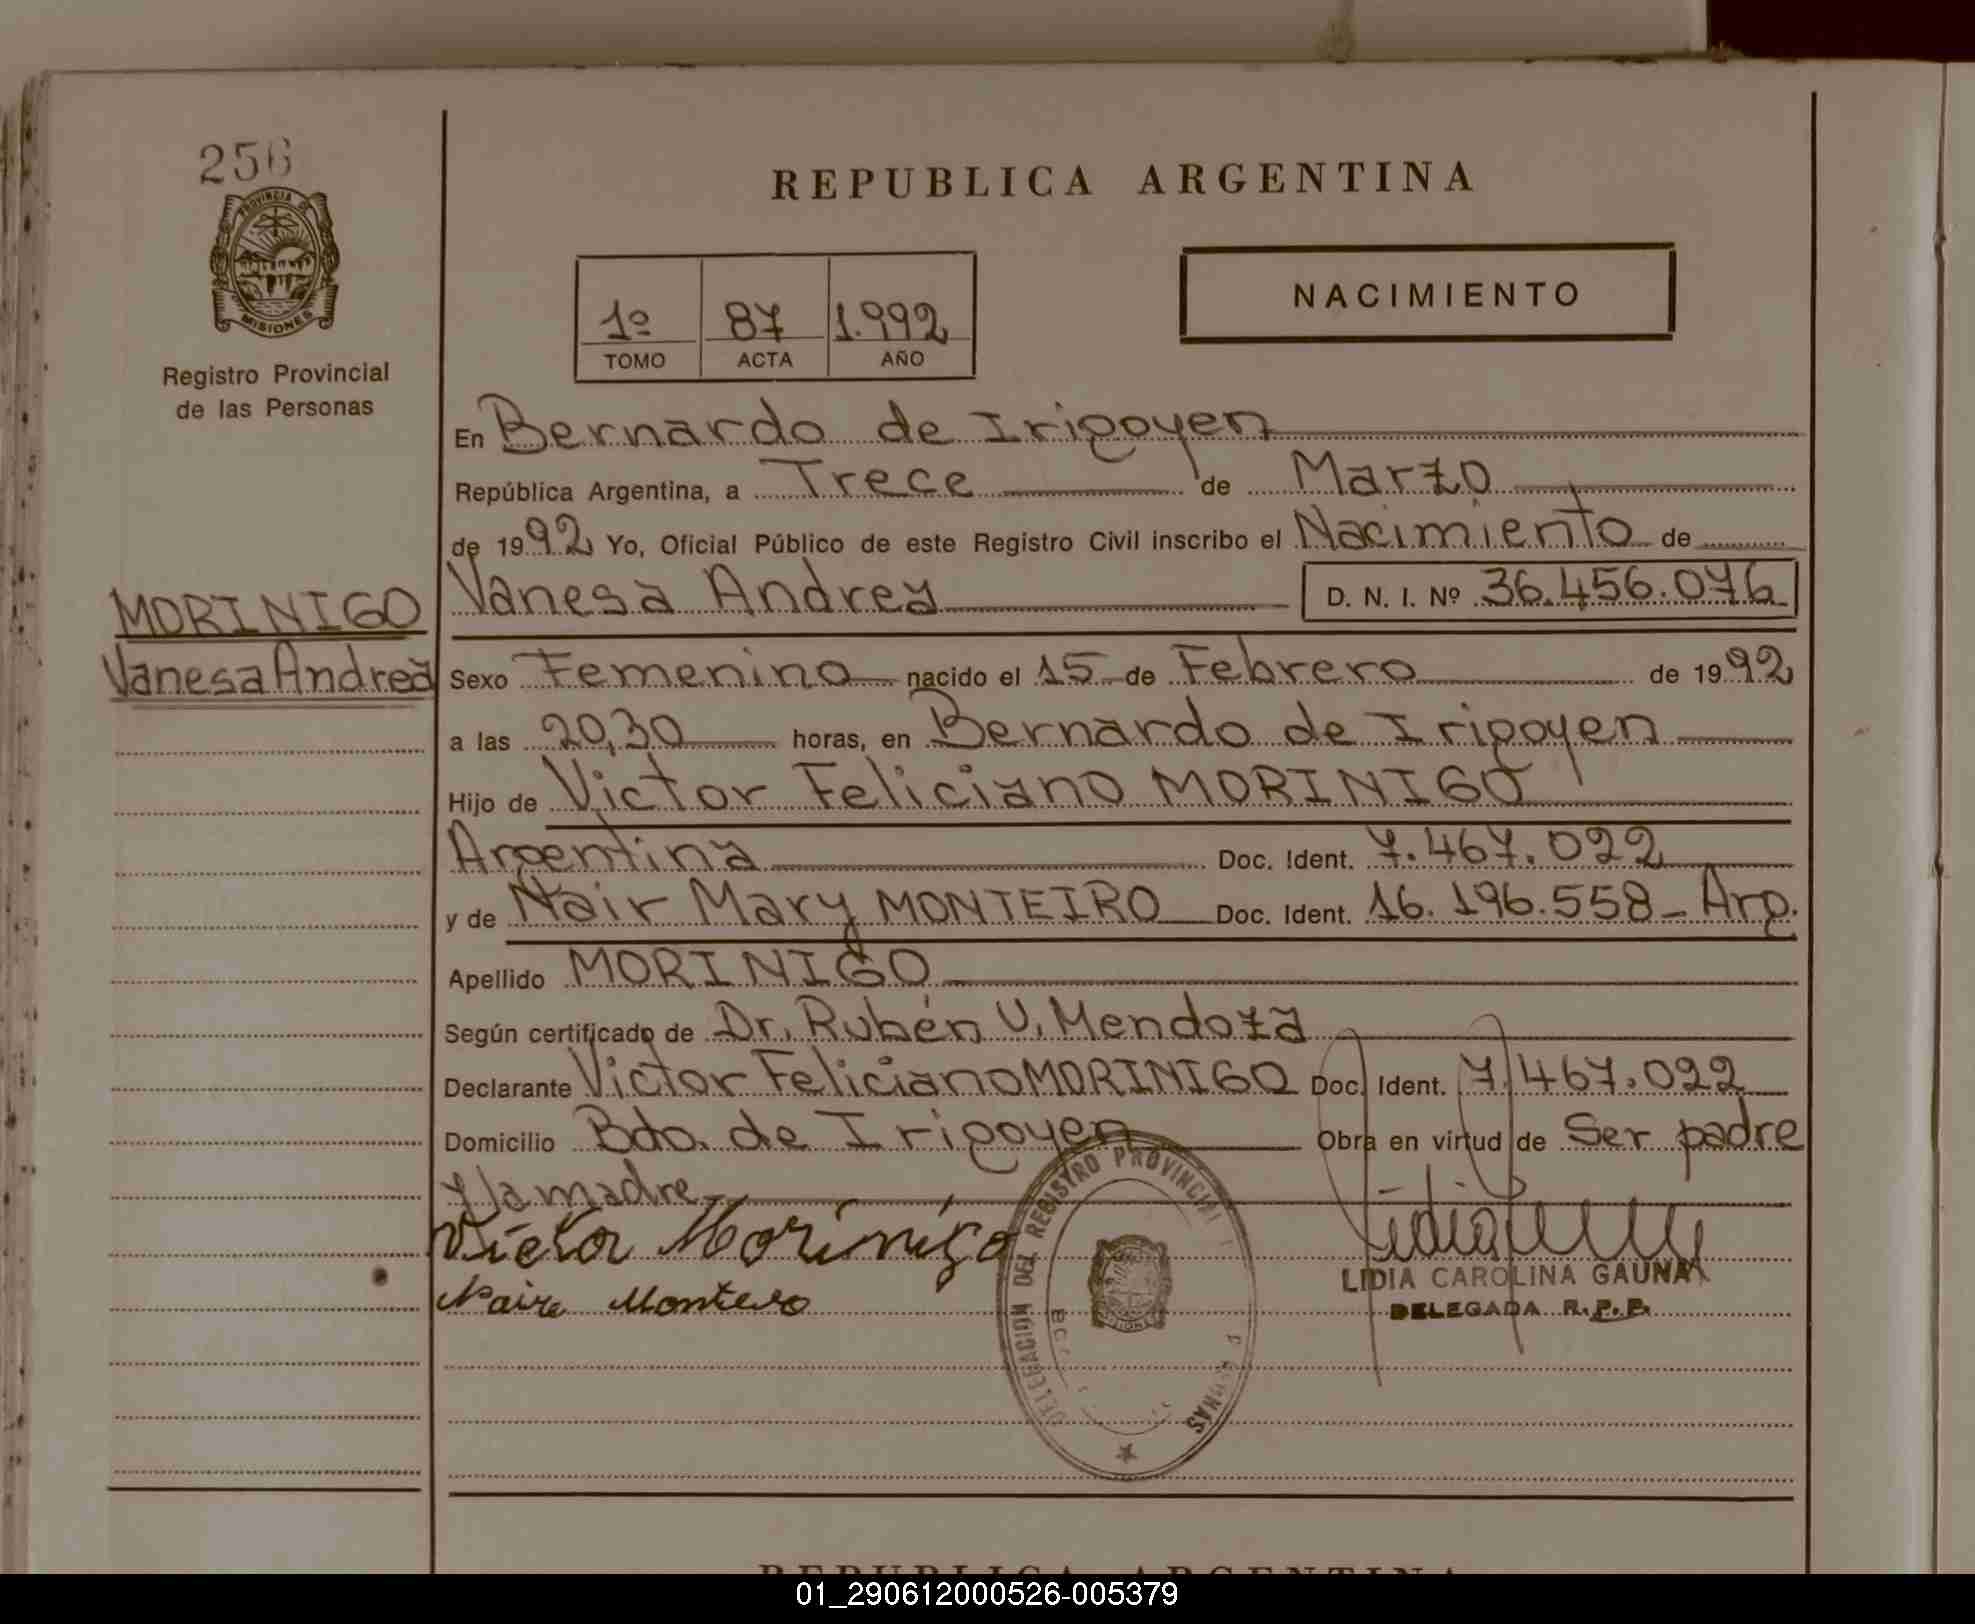 256
PROVINCIA DE
MISIONES
Registro Provincial
de las Personas
MORINIGO
Vanesa Andrea
REPUBLICA ARGENTINA
1º 87 1.992
TOMO ACTA AÑO
NACIMIENTO
En Bernardo de Irigoyen
República Argentina, a Trece de Marzo
de 1992 Yo, Oficial Público de este Registro Civil inscribo el Nacimiento de
Vanesa Andrea D. N. I. Nº 36.456.076
Sexo Femenino nacido el 15 de Febrero de 1992
a las 20,30 horas, en Bernardo de Irigoyen
Hijo de Victor Feliciano MORINIGO
Argentina Doc. Ident. 7.467.022
y de Nair Mary MONTEIRO Doc. Ident. 16.196.558 - Arg.
Apellido MORINIGO
Según certificado de Dr. Rubén U. Mendoza
Declarante Victor Feliciano MORINIGO Doc. Ident. 7.467.022
Domicilio Bdo. de Irigoyen Obra en virtud de Ser padre
y la madre
Victor Morinigo
Naire Montero
DELEGACION DEL REGISTRO PROVINCIAL
LIDIA CAROLINA GAUNA
DELEGADA R.P.P.
REPUBLICA ARGENTINA
01_290612000526-005379